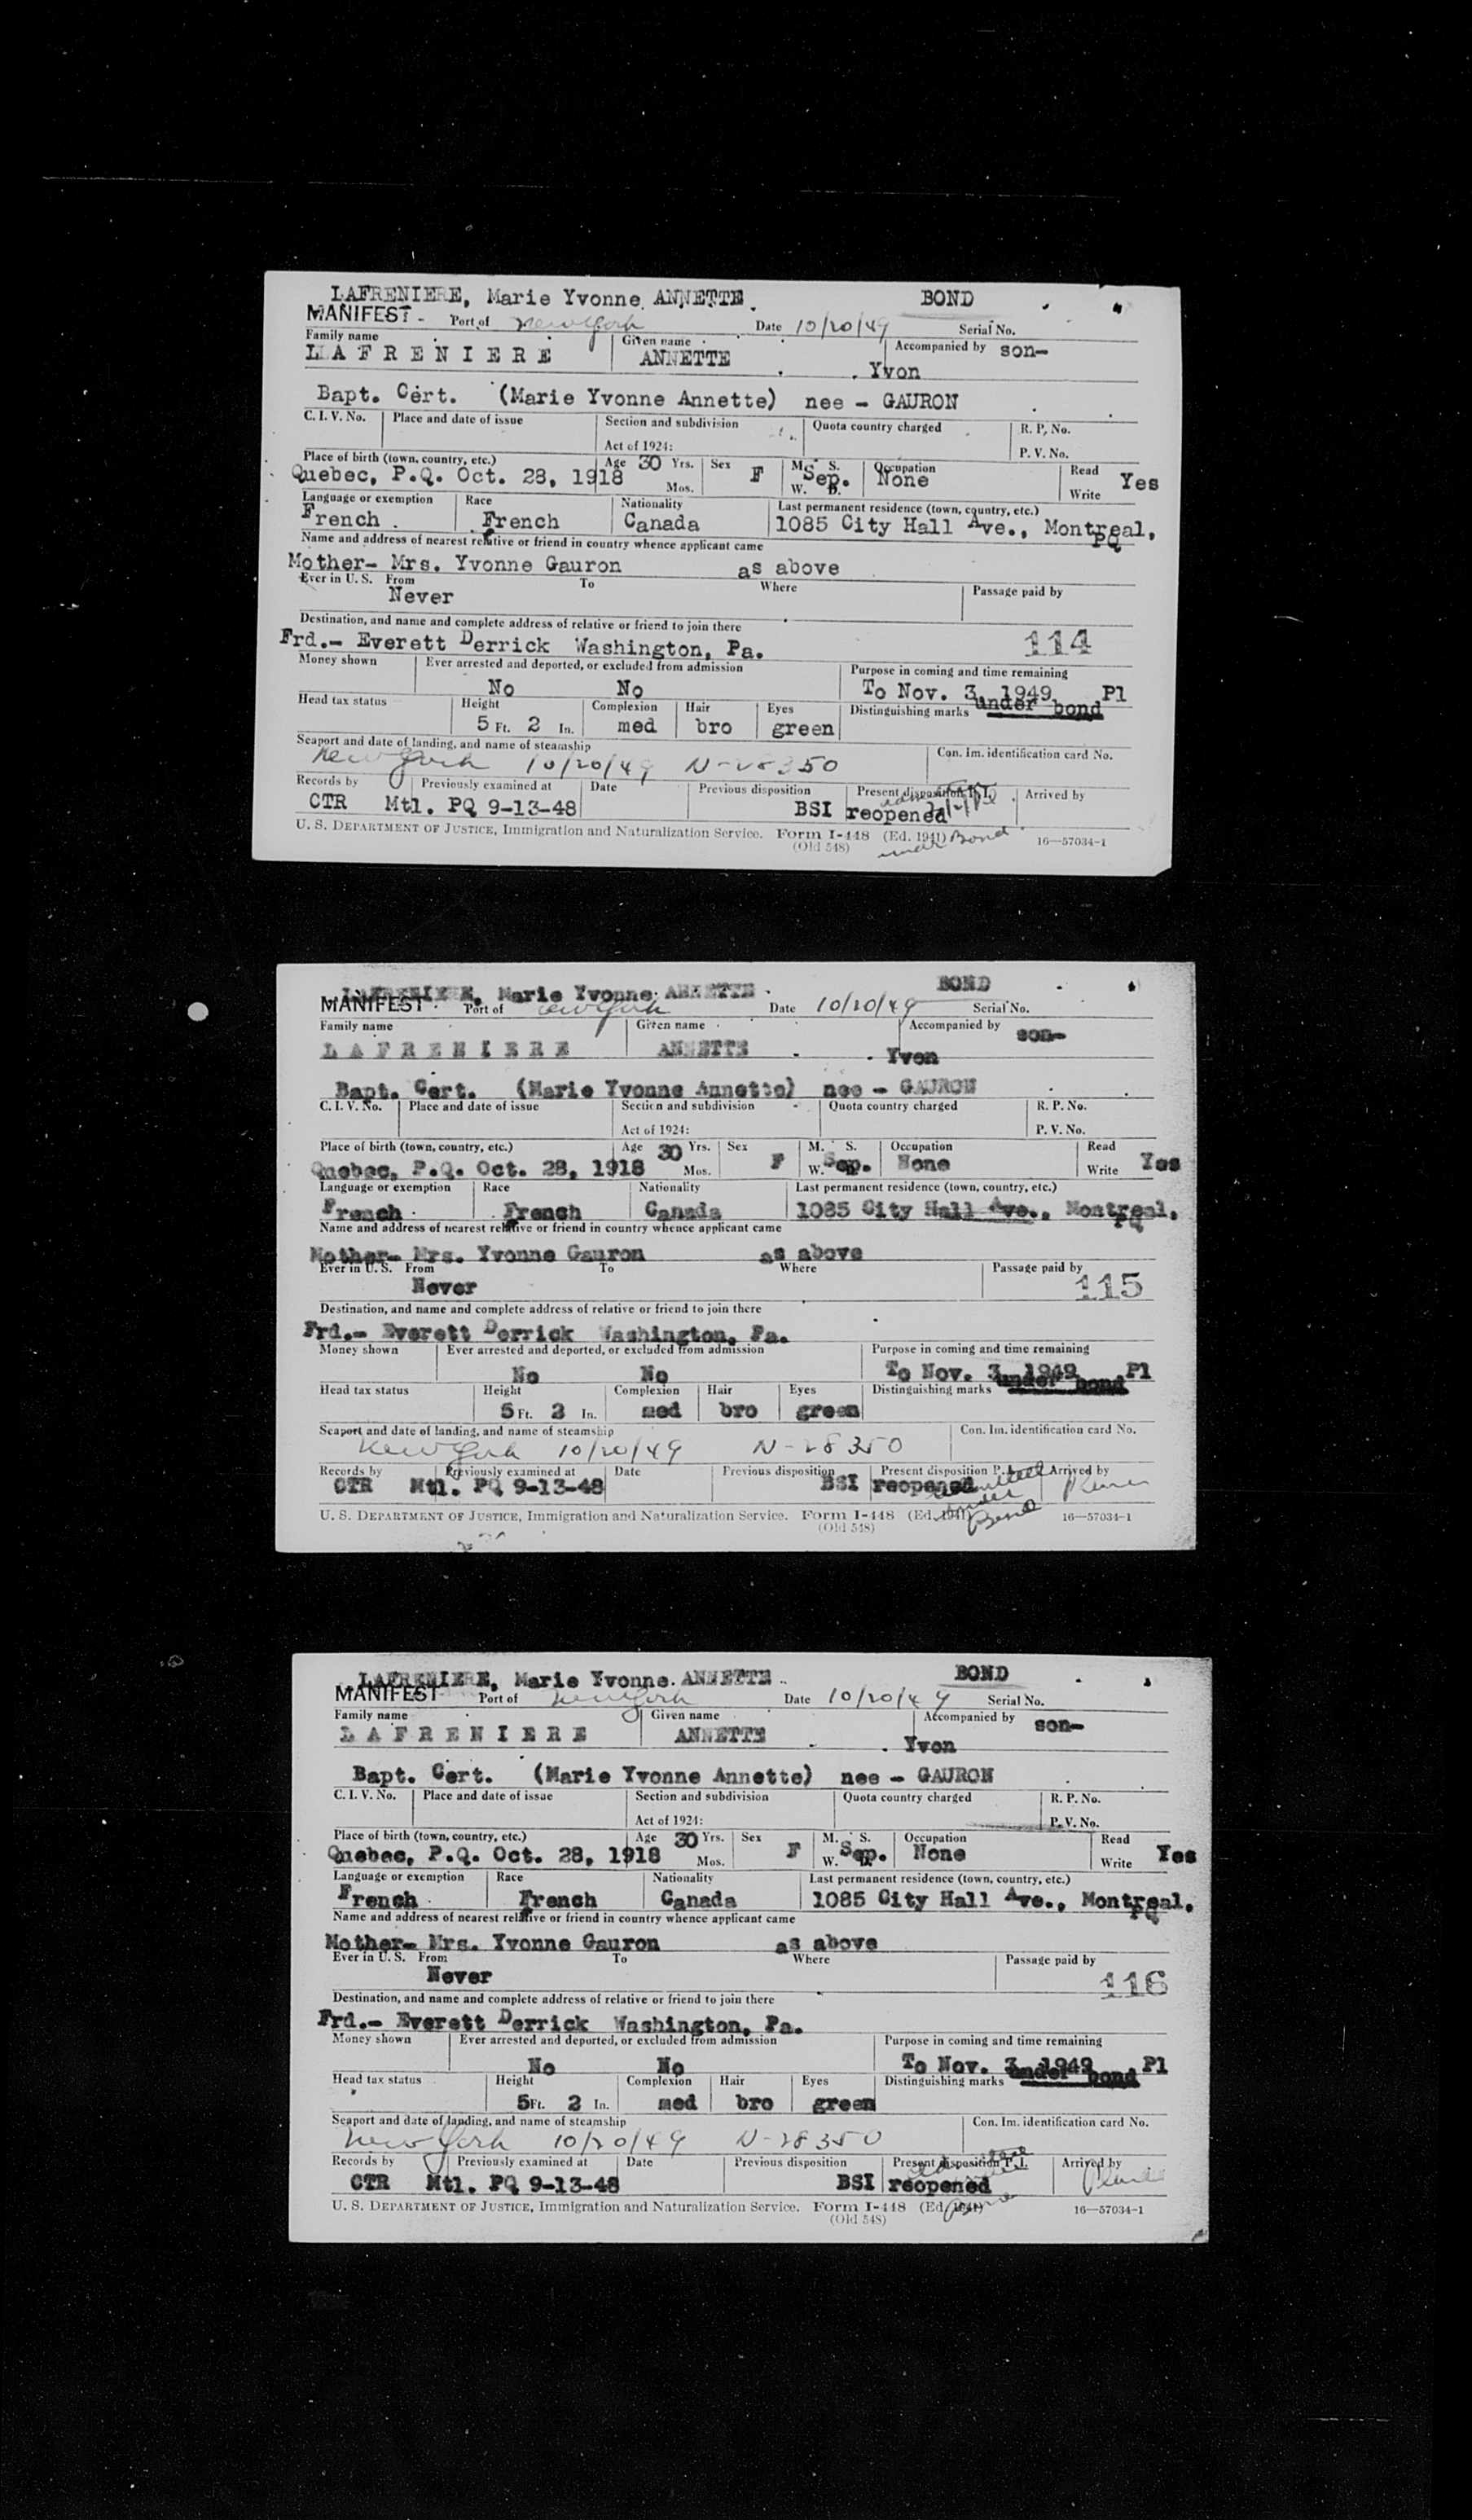 LAFRENIERE, Marie Yvonne ANNETTE BOND
MANIFEST Port of New York Date 10/20/49 Serial No.
Family name Given name Accompanied by son-
LAFRENIERE ANNETTE Yvon
Bapt. Cert. (Marie Yvonne Annette) nee - GAURON
C. I. V. No. Place and date of issue Section and subdivision Quota country charged R. P. No.
Act of 1924: P. V. No.
Place of birth (town, country, etc.) Age 30 Yrs. Sex M. S. Occupation Read
Quebec, P.Q. Oct. 28, 1918 Mos. F W. D. Sep. None Write Yes
Language or exemption Race Nationality Last permanent residence (town, country, etc.)
French French Canada 1085 City Hall Ave., Montreal, PQ
Name and address of nearest relative or friend in country whence applicant came
Mother- Mrs. Yvonne Gauron as above
Ever in U. S. From To Where Passage paid by
Never
Destination, and name and complete address of relative or friend to join there
Frd.- Everett Derrick Washington, Pa. 114
Money shown Ever arrested and deported, or excluded from admission Purpose in coming and time remaining
No No To Nov. 3, 1949 Pl
Head tax status Height Complexion Hair Eyes Distinguishing marks under bond
5 Ft. 2 In. med bro green
Seaport and date of landing, and name of steamship Con. Im. identification card No.
New York 10/20/49 N-28350
Records by Previously examined at Date Previous disposition Present disposition P. I. Arrived by
CTR Mtl. PQ 9-13-48 BSI reopened
U. S. DEPARTMENT OF JUSTICE, Immigration and Naturalization Service. Form I-448 (Ed. 1941) under Bond 16—57034-1
(Old 548)
LAFRENIERE, Marie Yvonne ANNETTE BOND
MANIFEST Port of New York Date 10/20/49 Serial No.
Family name Given name Accompanied by son-
LAFRENIERE ANNETTE Yvon
Bapt. Cert. (Marie Yvonne Annette) nee - GAURON
C. I. V. No. Place and date of issue Section and subdivision Quota country charged R. P. No.
Act of 1924: P. V. No.
Place of birth (town, country, etc.) Age 30 Yrs. Sex M. S. Occupation Read
Quebec, P.Q. Oct. 28, 1918 Mos. F W. D. Sep. None Write Yes
Language or exemption Race Nationality Last permanent residence (town, country, etc.)
French French Canada 1085 City Hall Ave., Montreal, PQ
Name and address of nearest relative or friend in country whence applicant came
Mother- Mrs. Yvonne Gauron as above
Ever in U. S. From To Where Passage paid by
Never 115
Destination, and name and complete address of relative or friend to join there
Frd.- Everett Derrick Washington, Pa.
Money shown Ever arrested and deported, or excluded from admission Purpose in coming and time remaining
No No To Nov. 3, 1949 Pl
Head tax status Height Complexion Hair Eyes Distinguishing marks under bond
5 Ft. 2 In. med bro green
Seaport and date of landing, and name of steamship Con. Im. identification card No.
New York 10/20/49 N-28350
Records by Previously examined at Date Previous disposition Present disposition P. I. Arrived by
CTR Mtl. PQ 9-13-48 BSI reopened admitted under Bond
U. S. DEPARTMENT OF JUSTICE, Immigration and Naturalization Service. Form I-448 (Ed. 1941) 16—57034-1
(Old 548)
LAFRENIERE, Marie Yvonne ANNETTE BOND
MANIFEST Port of New York Date 10/20/49 Serial No.
Family name Given name Accompanied by son-
LAFRENIERE ANNETTE Yvon
Bapt. Cert. (Marie Yvonne Annette) nee - GAURON
C. I. V. No. Place and date of issue Section and subdivision Quota country charged R. P. No.
Act of 1924: P. V. No.
Place of birth (town, country, etc.) Age 30 Yrs. Sex M. S. Occupation Read
Quebec, P.Q. Oct. 28, 1918 Mos. F W. D. Sep. None Write Yes
Language or exemption Race Nationality Last permanent residence (town, country, etc.)
French French Canada 1085 City Hall Ave., Montreal, PQ
Name and address of nearest relative or friend in country whence applicant came
Mother- Mrs. Yvonne Gauron as above
Ever in U. S. From To Where Passage paid by
Never 116
Destination, and name and complete address of relative or friend to join there
Frd.- Everett Derrick Washington, Pa.
Money shown Ever arrested and deported, or excluded from admission Purpose in coming and time remaining
No No To Nov. 3, 1949 Pl
Head tax status Height Complexion Hair Eyes Distinguishing marks under bond
5 Ft. 2 In. med bro green
Seaport and date of landing, and name of steamship Con. Im. identification card No.
New York 10/20/49 N-28350
Records by Previously examined at Date Previous disposition Present disposition P. I. Arrived by
CTR Mtl. PQ 9-13-48 BSI reopened
U. S. DEPARTMENT OF JUSTICE, Immigration and Naturalization Service. Form I-448 (Ed. 1941) 16—57034-1
(Old 548)